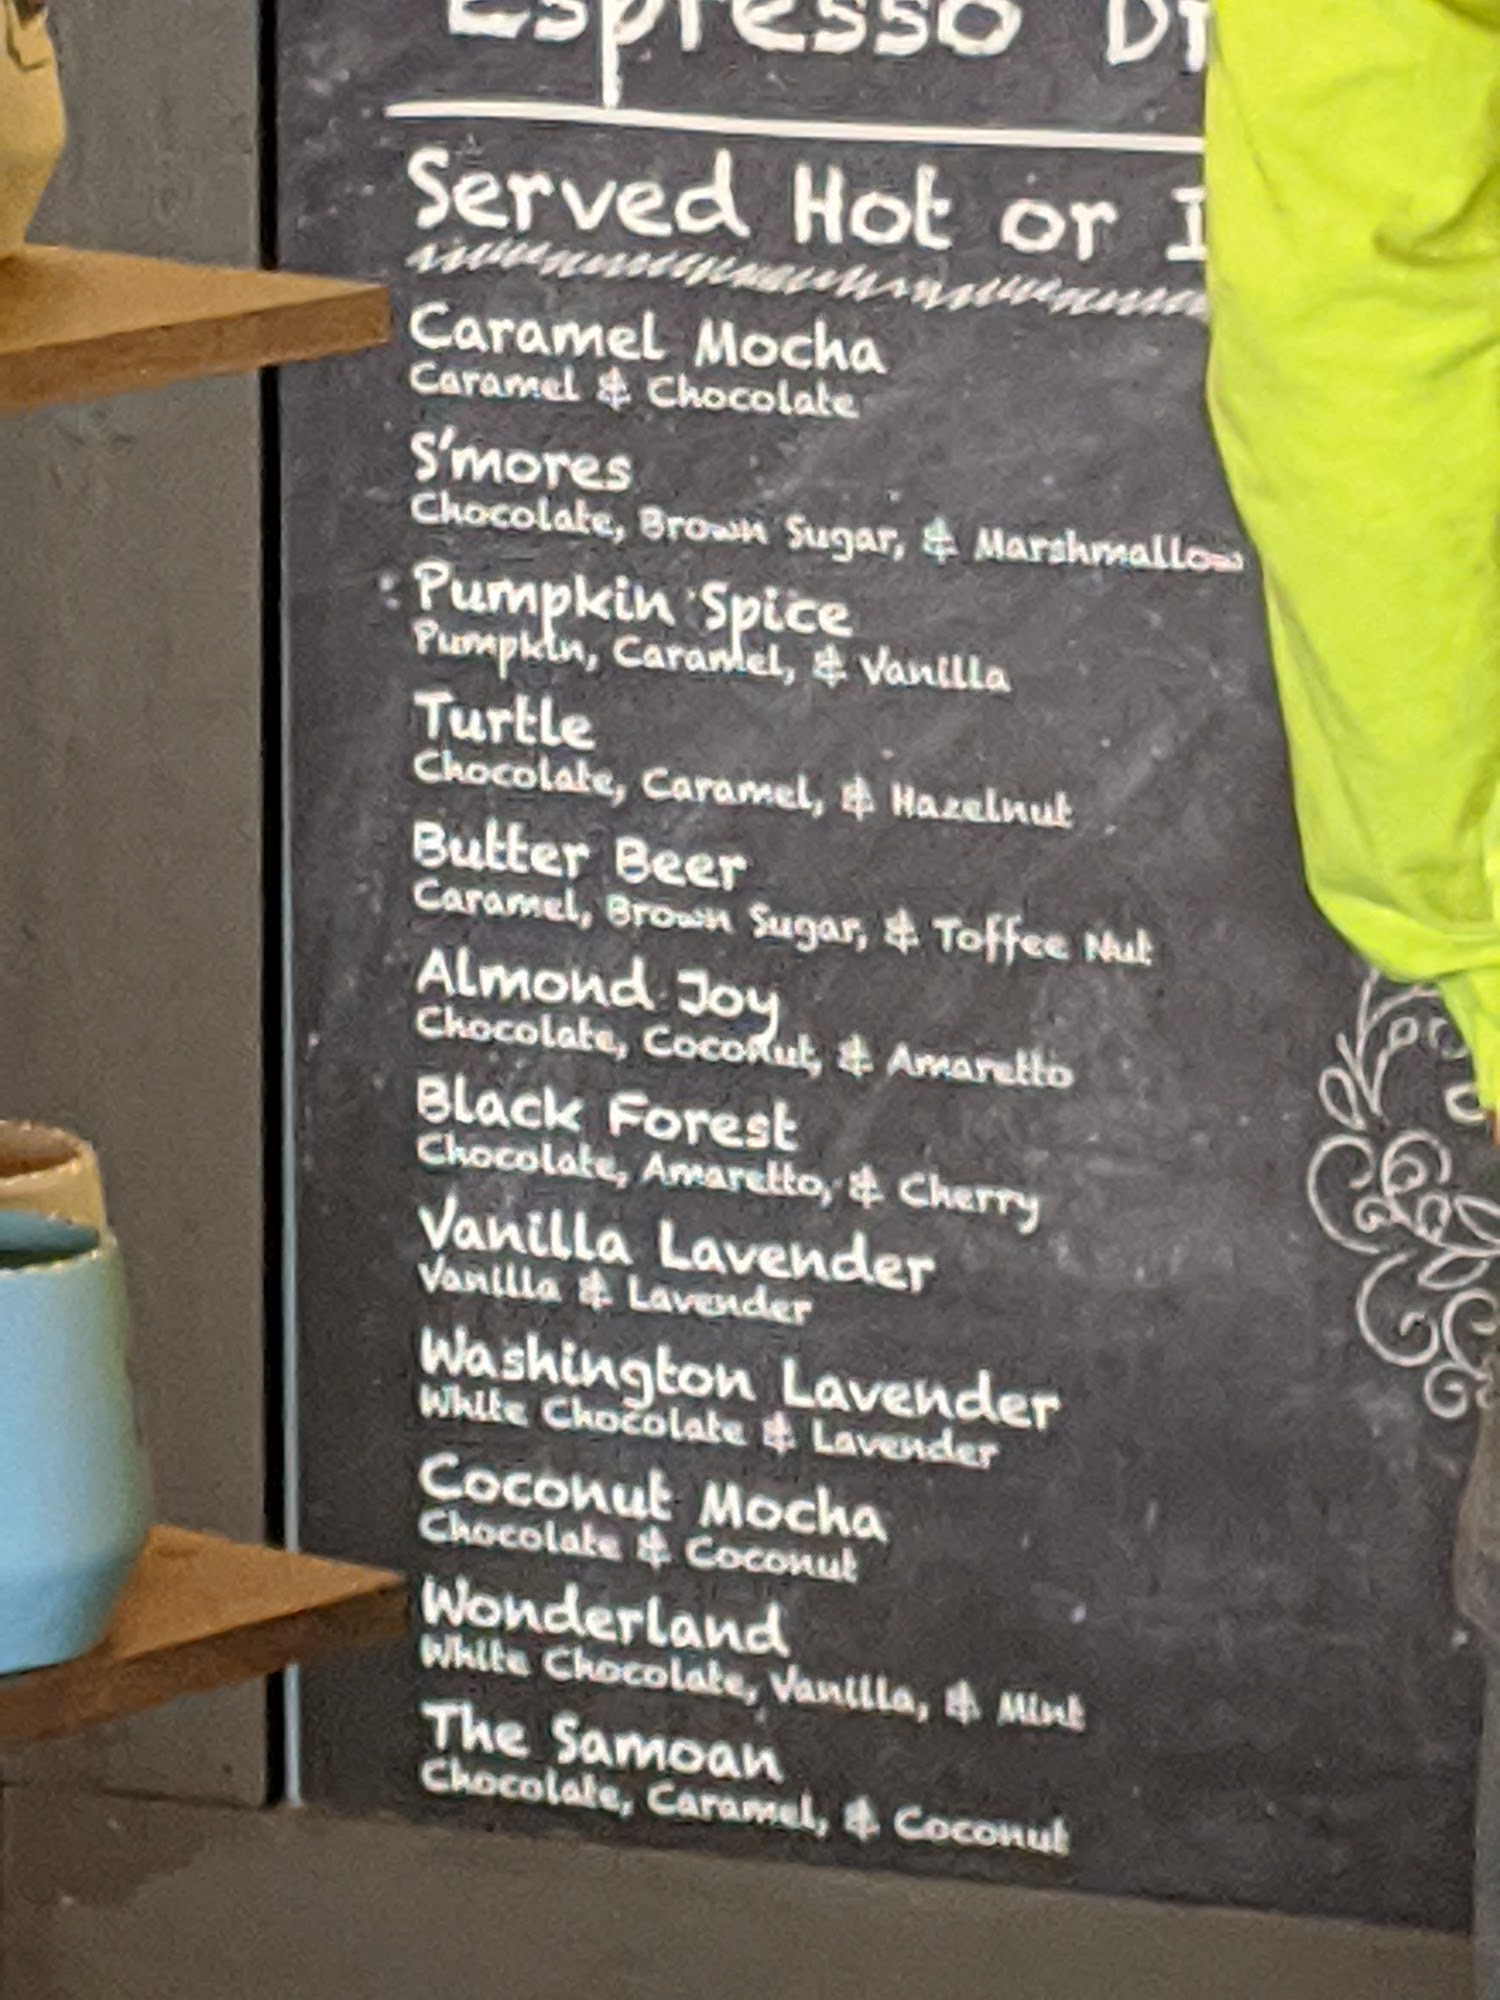 Espresso
Served Hot or
Caramel Mocha
Caramel & Chocolate
S'mores
Chocolate, Brown Sugar, & Marshmallow
Pumpkin Spice
Pumpkin, Caramel, & Vanilla
Turtle
Chocolate, Caramel, & Hazelnut
Butter Beer
Caramel, Brown Sugar, & Toffee Nut
Almond Joy
Chocolate, Coconut, & Amaretto
Black Forest
Chocolate, Amaretto, & Cherry
Vanilla Lavender
Vanilla & Lavender
Washington Lavender
White Chocolate & Lavender
Coconut Mocha
Chocolate & Coconut
Wonderland
White Chocolate, Vanilla, & Mint
The Samoan
Chocolate, Caramel, & Coconut